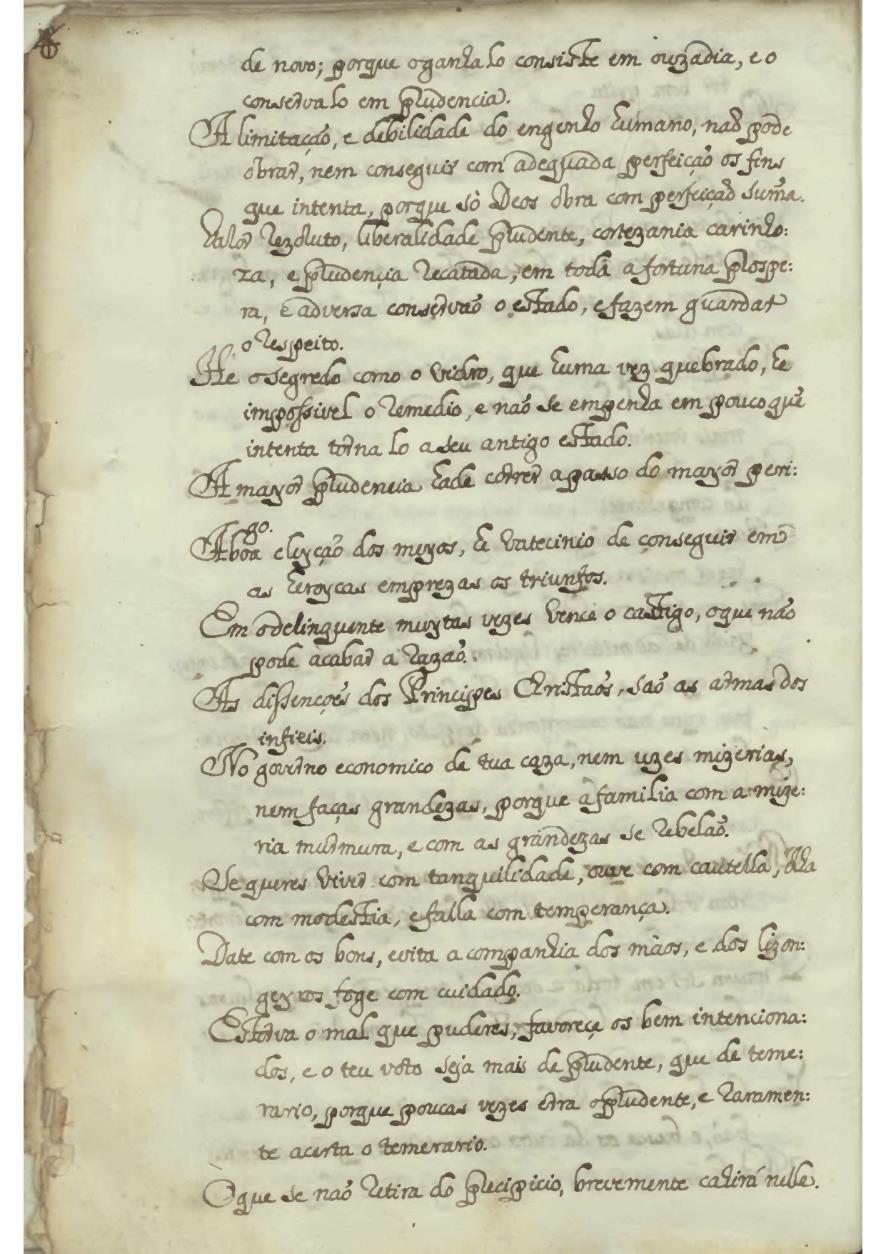 de novo; porque o ganhalo consiste em ouzadia, e o
conservalo em prudencia.
A limitação, e debilidade do engenho humano, naõ pode
obrar, nem conseguir com adequada perfeição os fins
que intenta, porque só Deos obra com perfeiçaõ suma.
Valor rezoluto, liberalidade prudente, cortezania carinho:
za, e prudencia recatada, em toda a fortuna prospe:
ra, e adversa conservaõ o estado, e fazem guardar
o respeito.
He o segredo como o vidro, que huma vez quebrado, he
impossivel o remedio, e naõ se empenha em pouco quẽ
intenta tornalo a seu antigo estado.
A mayor prudencia hade correr a passo do mayor peri:
go.
A boa eleyçaõ dos meyos, he vatecinio de conseguir em
as heroycas emprezas os triunfos.
Em o delinquente muytas vezes vence o castigo, o que naõ
pode acabar a razaõ.
As dissenções dos Principes Christaõs, saõ as armas dos
infieis.
No governo economico de tua caza, nem uzes mizerias,
nem faças grandezas, porque a familia com a mize:
ria murmura, e com as grandezas se rebelaõ.
Se queres viver com tanquilidade, ouve com cautella, olha
com modestia, e falla com temperança.
Date com os bons, evita a companhia dos màos, e dos lizon:
geyros foge com cuidado.
Estorva o mal que puderes, favoreçe os bem intenciona:
dos, e o teu voto seja mais de prudente, que de teme:
rario, porque poucas vezes erra o prudente, e raramen:
te acerta o temerario.
O que se naõ retira do precipicio, brevemente cahirá nelle.